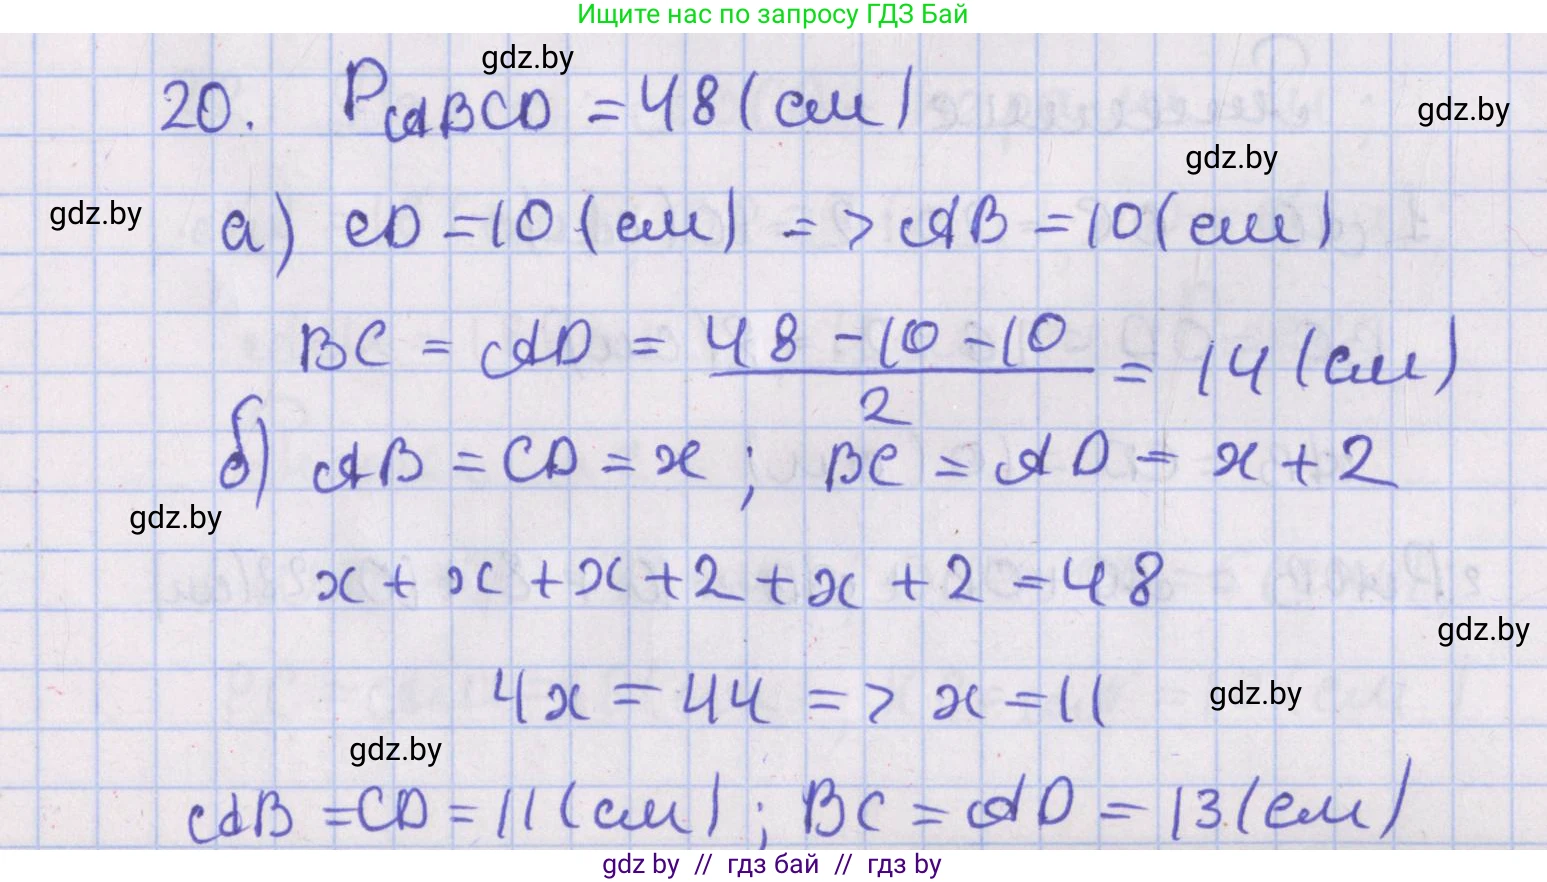 Ищите нас по запросу ГДЗ Бай
gdz.by
20. P ABCD = 48 (см)
gdz.by
gdz.by
gdz.by
а) CD = 10 (см) => AB = 10 (см)
BC = AD = (48 - 10 - 10)/2 = 14 (см)
б) AB = CD = x ; BC = AD = x + 2
gdz.by
x + x + x + 2 + x + 2 = 48
gdz.by
4x = 44 => x = 11
gdz.by
gdz.by
AB = CD = 11 (см) ; BC = AD = 13 (см)
gdz by // гдз бай // гдз by